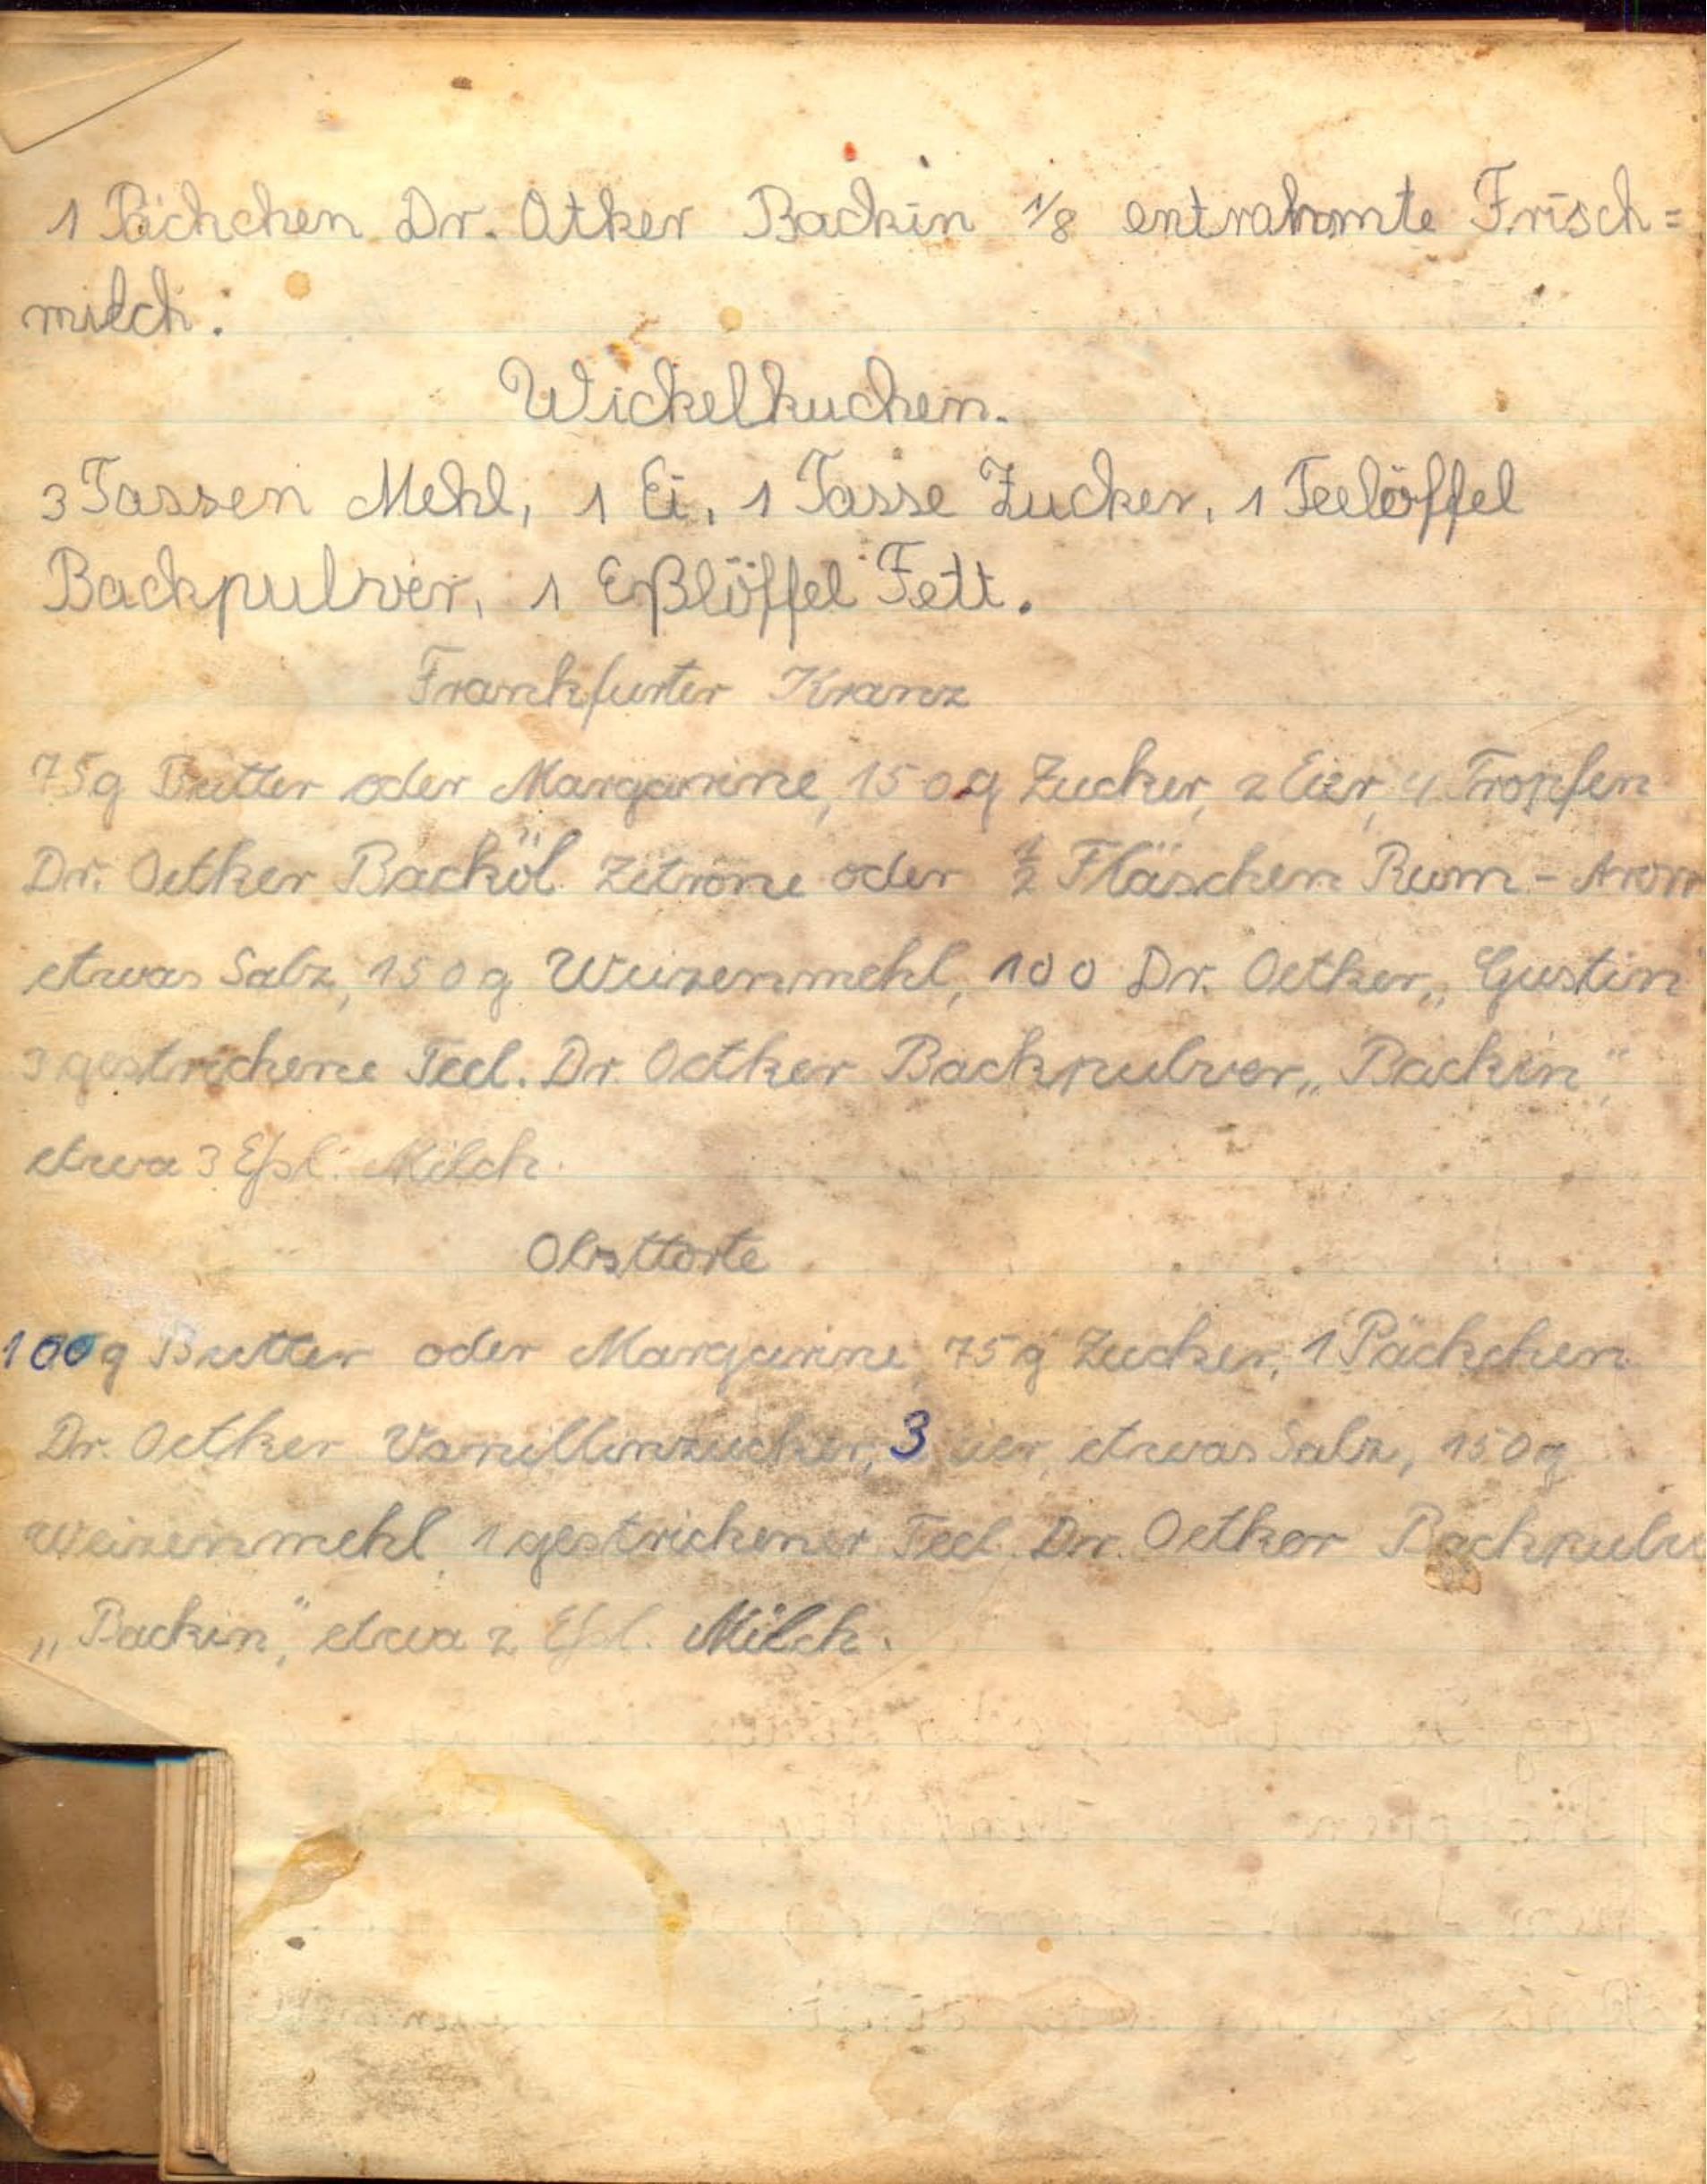 1 Päckchen Dr. Otker Backin 1/8 entrahmte Frisch=
milch.
Wickelkuchen.
3 Tassen Mehl, 1 Ei, 1 Tasse Zucker, 1 Teelöffel
Backpulver, 1 Eßlöffel Fett.
Frankfurter Kranz
75g Butter oder Margarine, 150g Zucker, 2 Eier, 4 Tropfen
Dr. Oetker Backöl Zitrone oder 1/2 Fläschen Rum - Arom
etwas Salz, 150g Weizenmehl, 100 Dr. Oetker „Gustin"
3 gestrichene Teel. Dr. Oetker Backpulver „Backin",
etwa 3 Eßl. Milch.
Obsttorte
100g Butter oder Margarine, 75g Zucker, 1 Päckchen
Dr. Oetker Vanillinzucker, 3 Eier, etwas Salz, 150g
Weizenmehl, 1 gestrichener Teel. Dr. Oetker Backpulv
„Backin", etwa 2 Eßl. Milch.